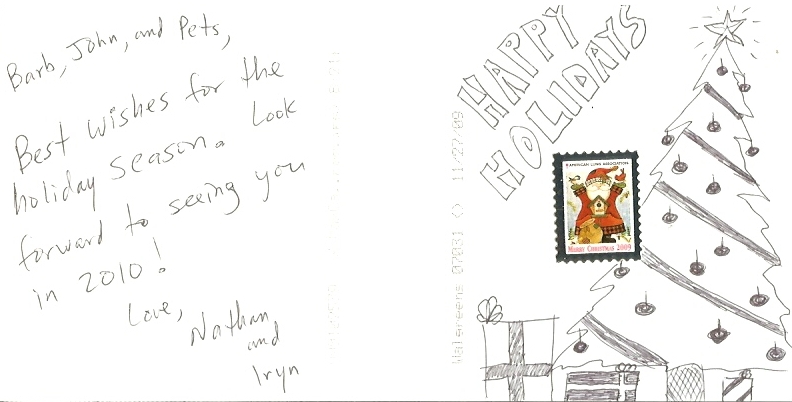 Barb, John, and Pets,
Best wishes for the
holiday season. Look
forward to seeing you
in 2010!
Love,
Nathan
and
Iryn
HAPPY
HOLIDAYS
Walgreens 07031 <> 11/27/09
AMERICAN LUNG ASSOCIATION
MERRY CHRISTMAS 2009